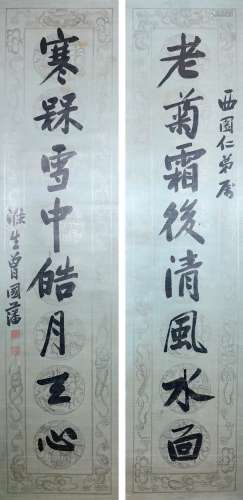 西園仁弟屬
老菊霜後清風水面
寒槑雪中皓月天心
滌生曾國藩